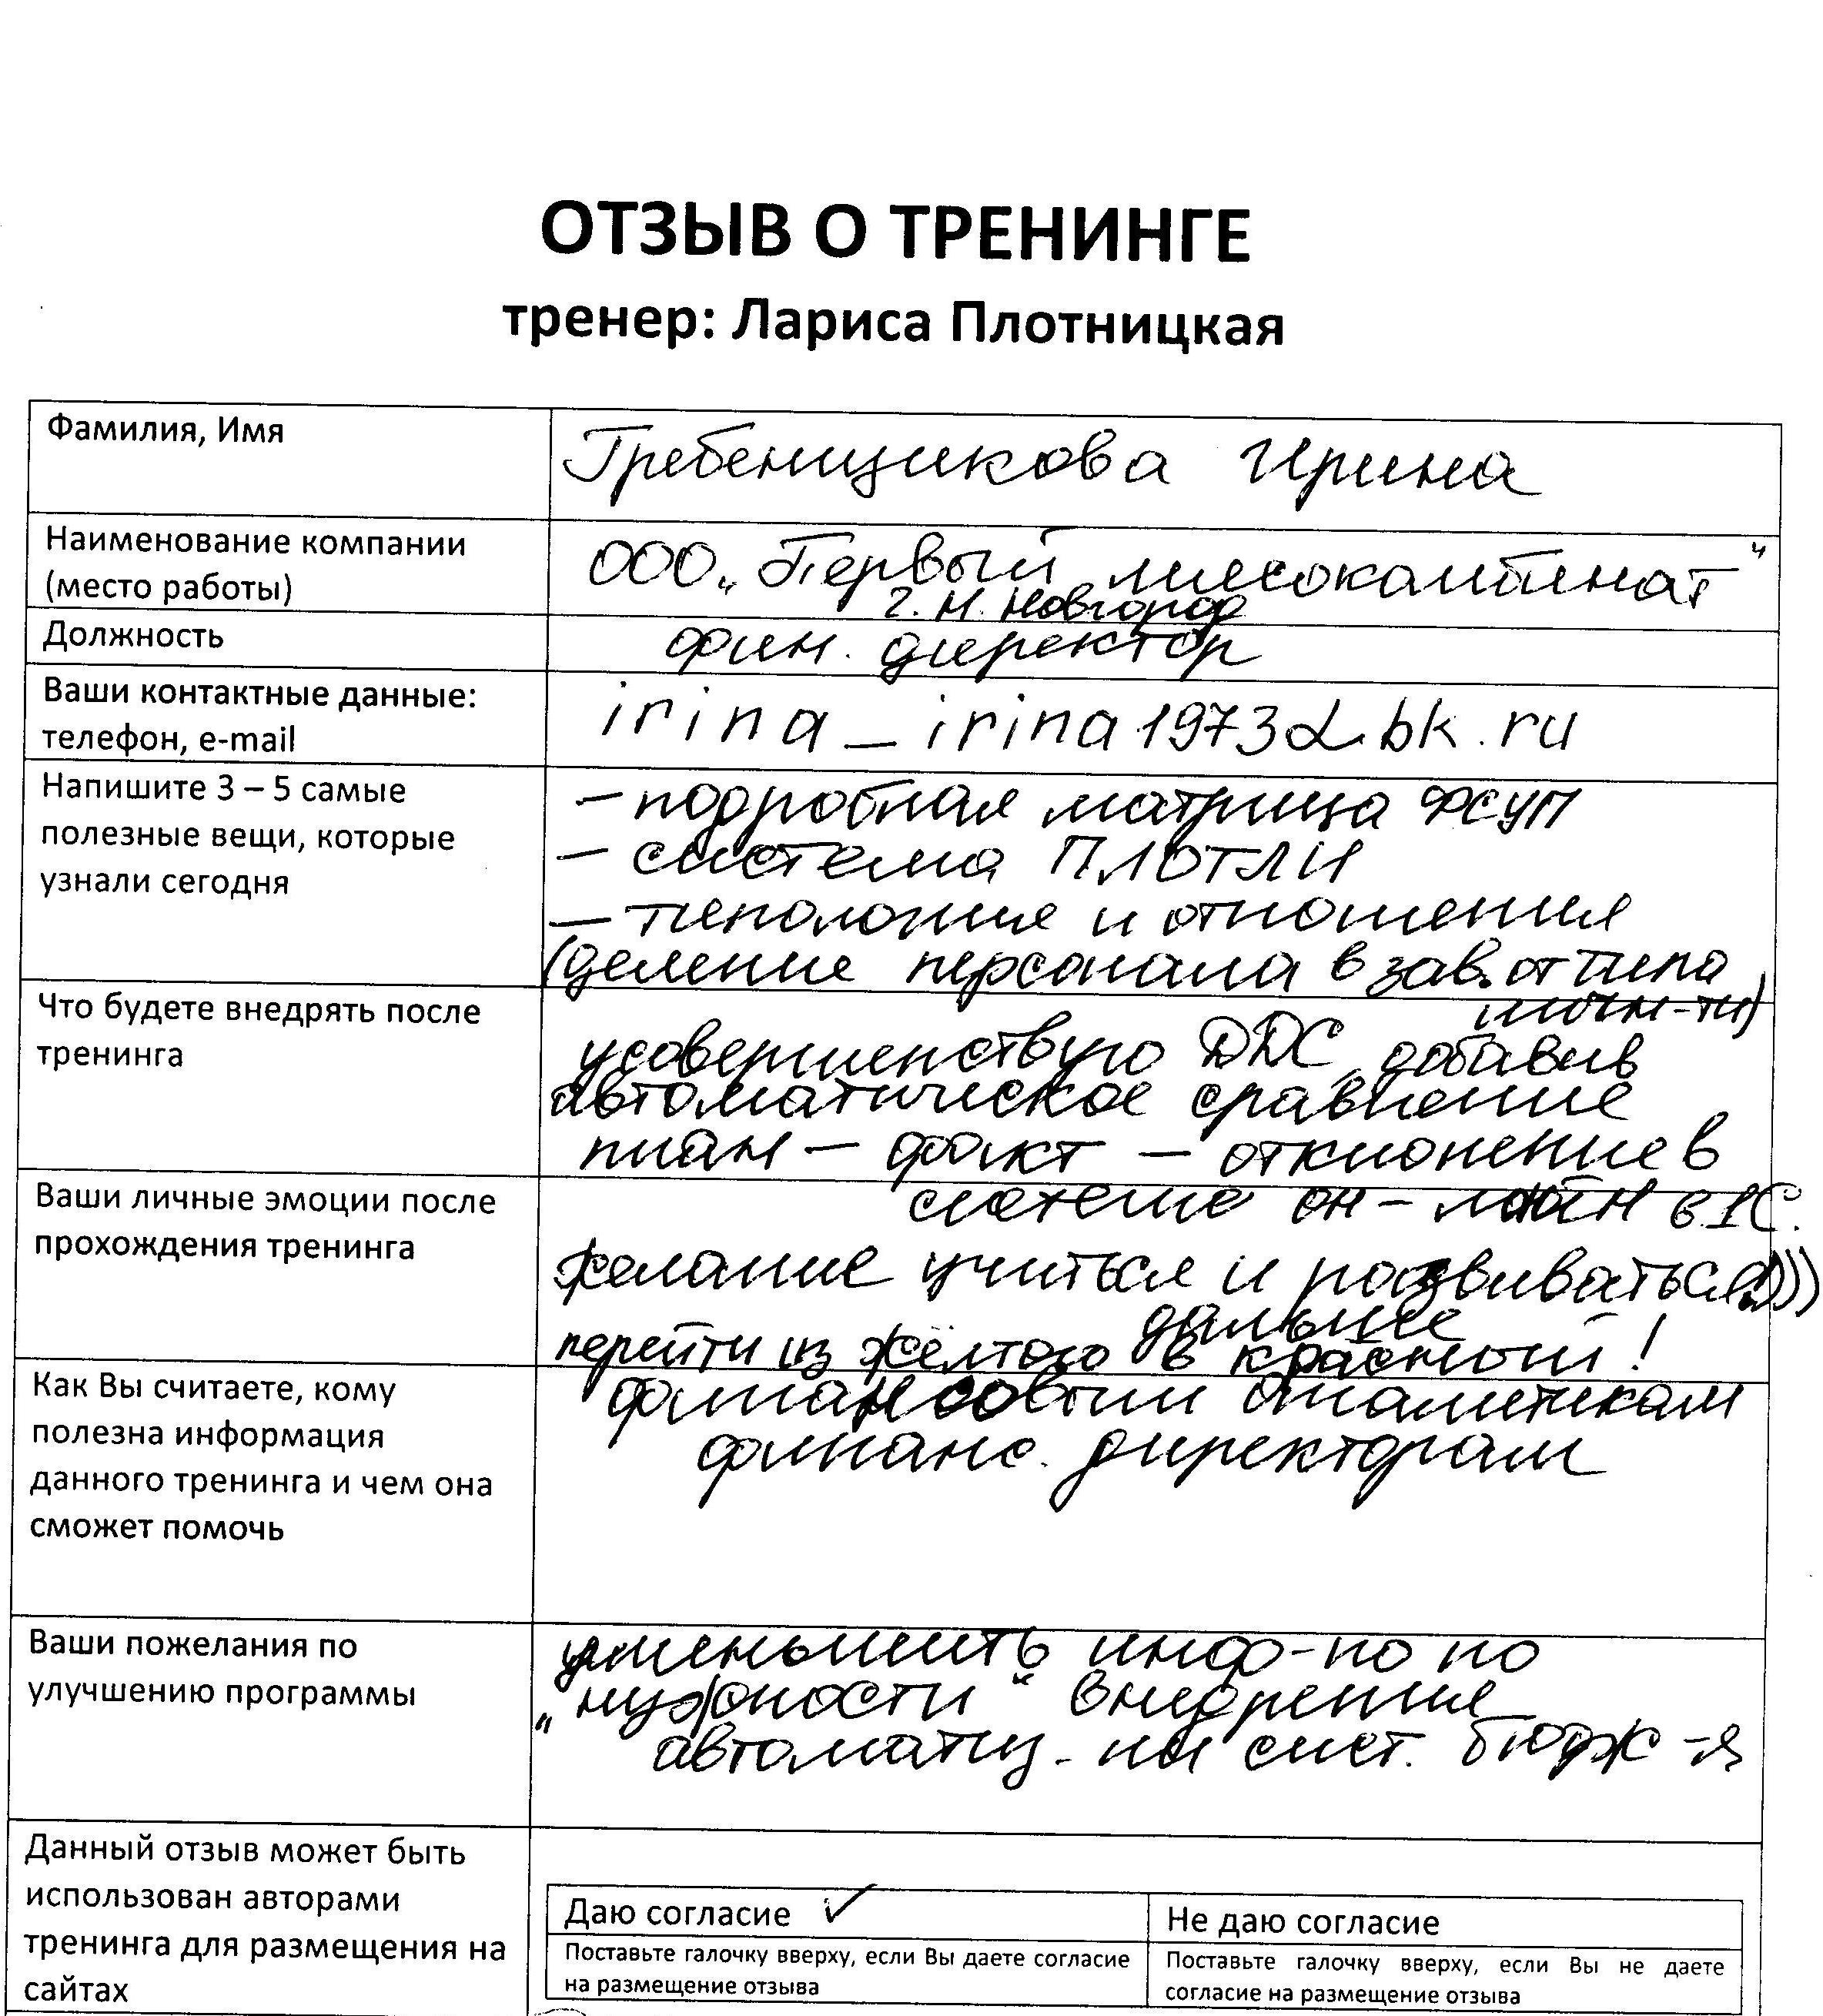 ОТЗЫВ О ТРЕНИНГЕ
тренер: Лариса Плотницкая
Фамилия, Имя
Гребенщикова Ирина
Наименование компании
(место работы)
ООО „Первый мясокомбинат"
г. Н. Новгород
Должность
фин. директор
Ваши контактные данные:
телефон, e-mail
irina_irina1973@bk.ru
Напишите 3 – 5 самые
полезные вещи, которые
узнали сегодня
- подробная матрица ФСУП
- система ПЛОТЛИ
- типология и отношения
(деление персонала в зав. от типа
личн-ти)
Что будете внедрять после
тренинга
усовершенствую ДДС, добавив
автоматическое сравнение
план - факт - отклонение в
системе он-лайн в 1С.
Ваши личные эмоции после
прохождения тренинга
желание учиться и развиваться
дальше
перейти из жёлтого в красный!
Как Вы считаете, кому
полезна информация
данного тренинга и чем она
сможет помочь
финансовым аналитикам
финанс. директорам
Ваши пожелания по
улучшению программы
уменьшить инф-ю по
„нужности" внедрения
автоматиз-ции сист. бюдж-я
Данный отзыв может быть
использован авторами
тренинга для размещения на
сайтах
Даю согласие ✓
Поставьте галочку вверху, если Вы даете согласие
на размещение отзыва
Не даю согласие
Поставьте галочку вверху, если Вы не даете
согласие на размещение отзыва